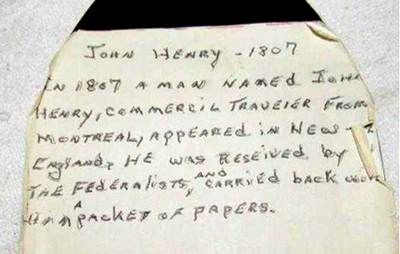 JOHN HENRY - 1807
IN 1807 A MAN NAMED JOHN
HENRY, COMMERCIL TRAVELER FROM
MONTREAL, APPEARED IN NEW -
ENGLAND, HE WAS RESEIVED by
THE FEDERALISTS, AND CARRIED back with
HIM A PACKET OF PAPERS.